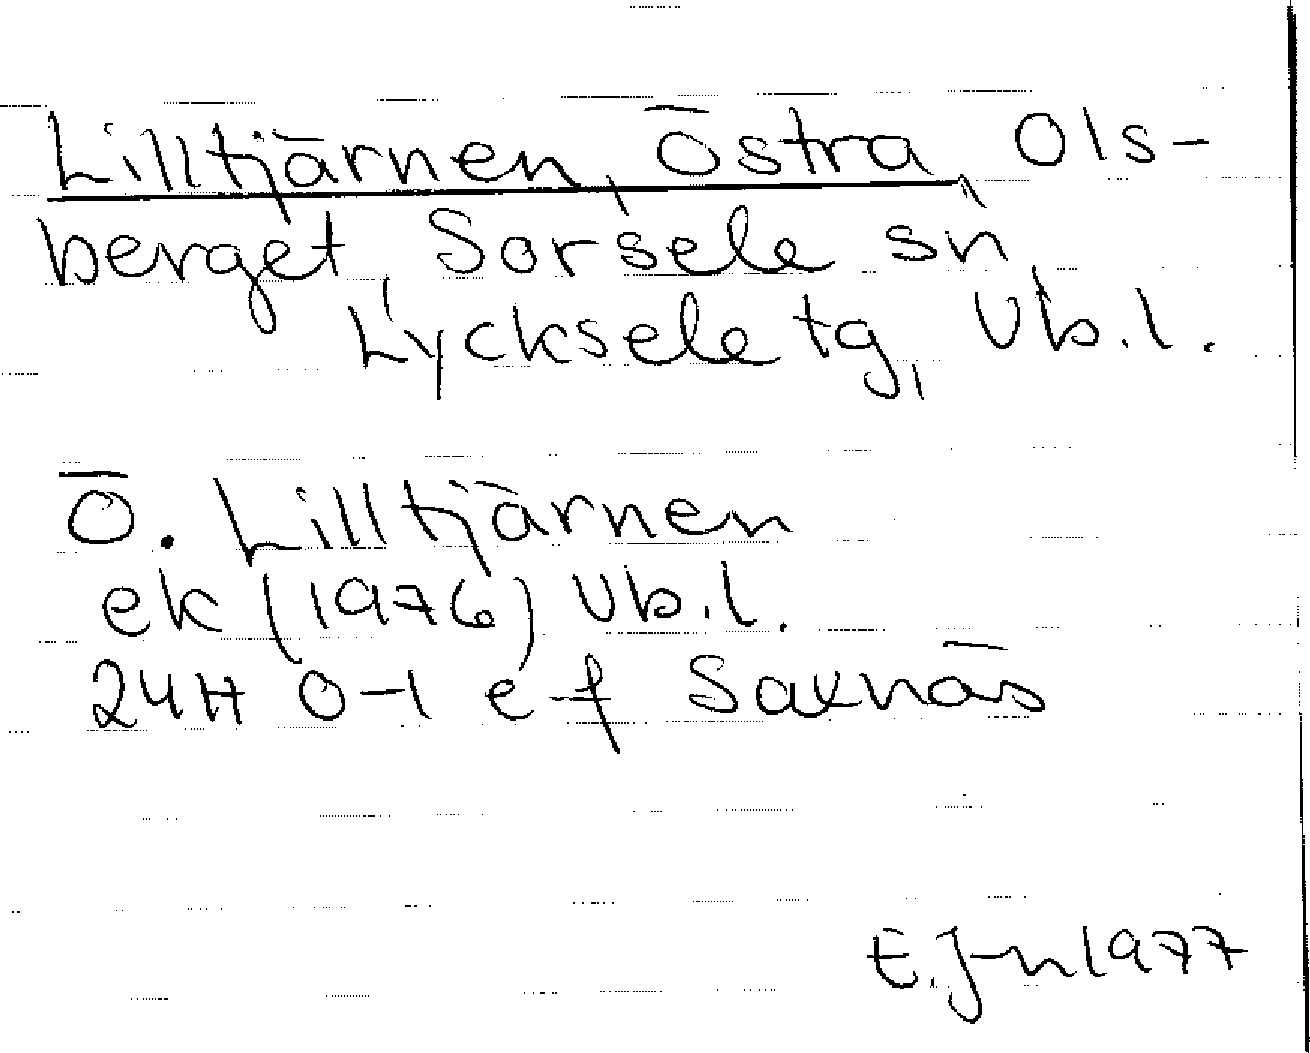 Lilltjärnen, Östra, Ols-
berget, Sorsele sn,
Lycksele tg, Vb.l.
Ö. Lilltjärnen
ek (1976) Vb.l.
24H 0-1 e-f Saxnäs
E. J-n 1977